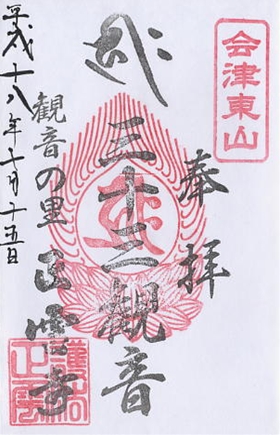 会津東山
奉拝
三十三観音
観音の里
正雲寺
平成十八年十月十五日